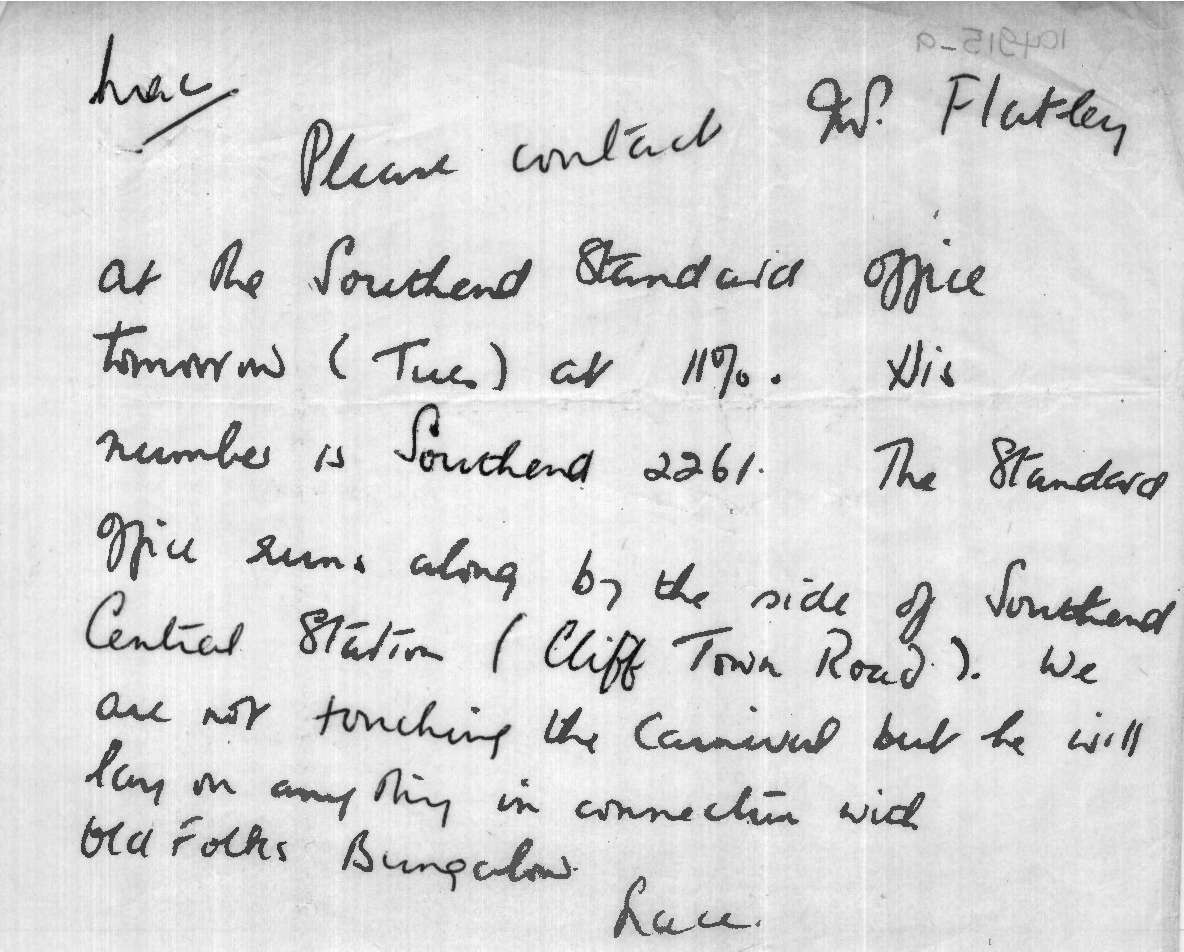 104915-a
Please contact Mr. Flatley
at the Southend Standard office
tomorrow (Tues) at 11 o/c. His
number is Southend 2261. The Standard
office runs along by the side of Southend
Central Station (Cliff Town Road). We
are not touching the Carnival but he will
lay on anything in connection with
Old Folks Bungalow